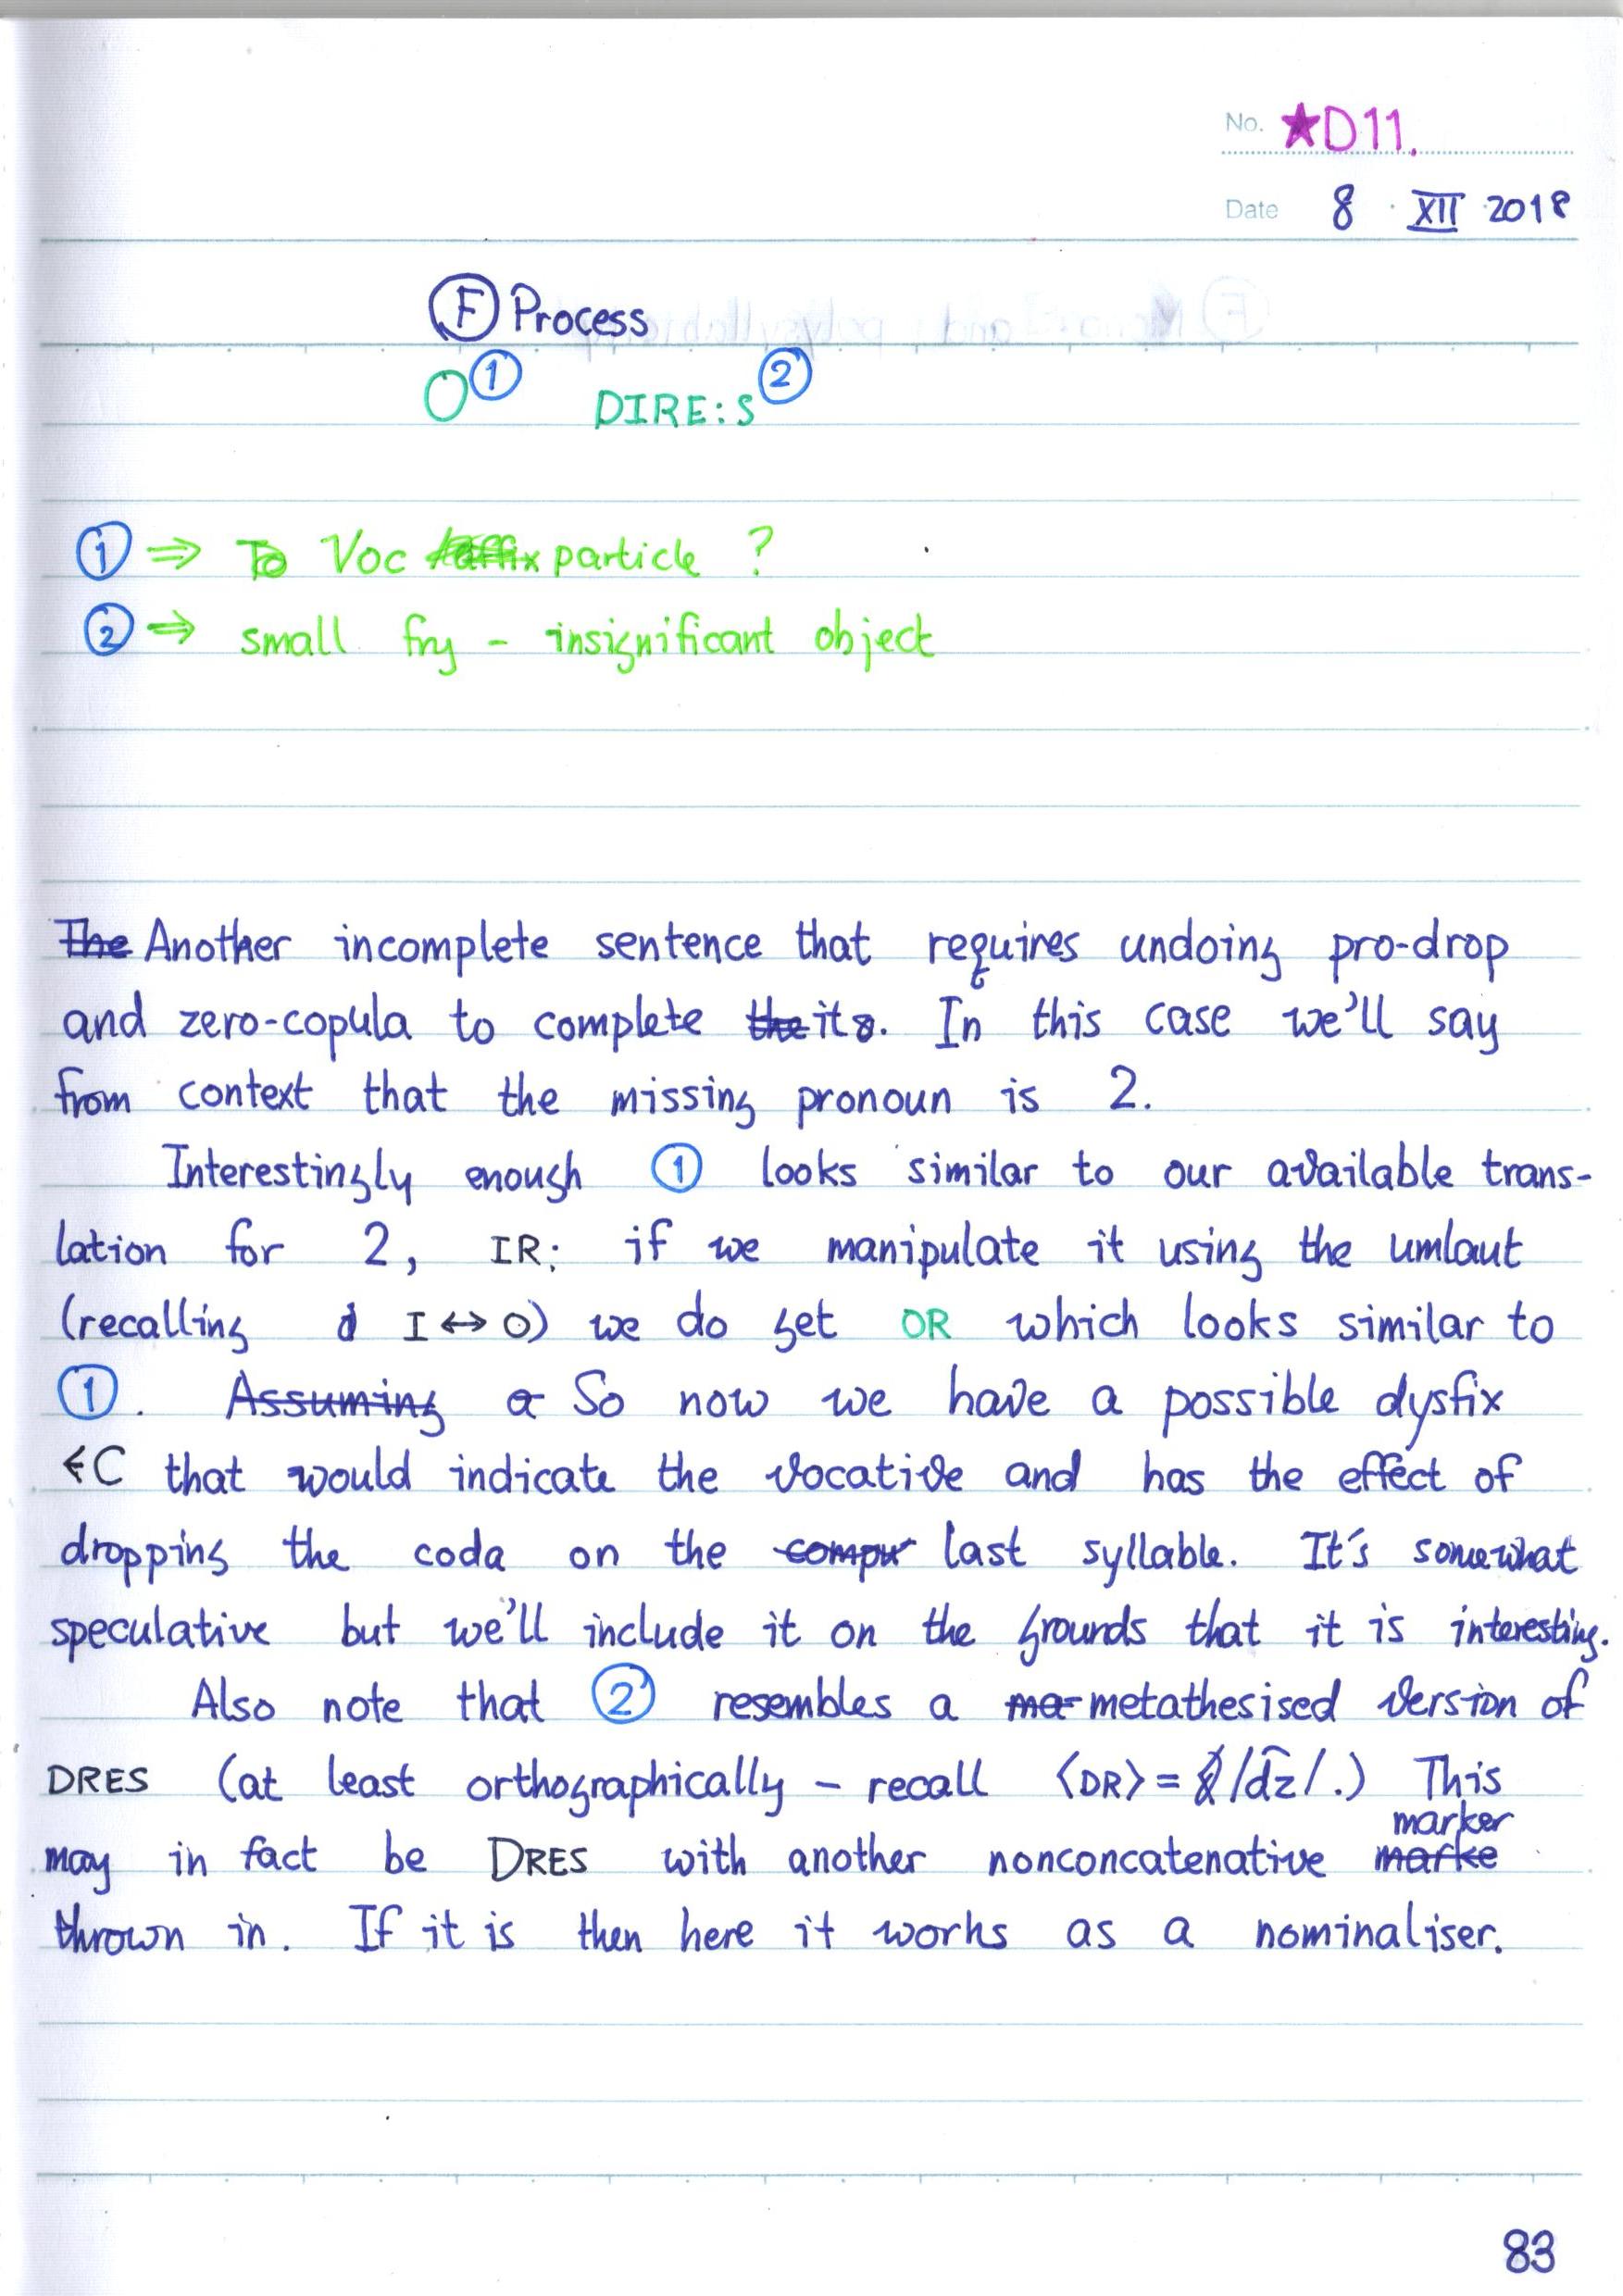 No. ★D11.
Date 8 · XII 2018
Ⓕ Process
O① DIRE:S②
① ⇒ To Voc affix particle ?
② ⇒ small fry - insignificant object
The Another incomplete sentence that requires undoing pro-drop
and zero-copula to complete the its. In this case we'll say
from context that the missing pronoun is 2.
Interestingly enough ① looks similar to our available trans-
lation for 2, IR; if we manipulate it using the umlaut
(recalling I ↔ O) we do get OR which looks similar to
①. Assuming a So now we have a possible dysfix
C that would indicate the vocative and has the effect of
dropping the coda on the compu last syllable. It's somewhat
speculative but we'll include it on the grounds that it is interesting.
Also note that ② resembles a me- metathesised version of
DRES (at least orthographically - recall ⟨DR⟩ = /d͡z/.) This
marker
may in fact be DRES with another nonconcatenative marke
thrown in. If it is then here it works as a nominaliser.
83